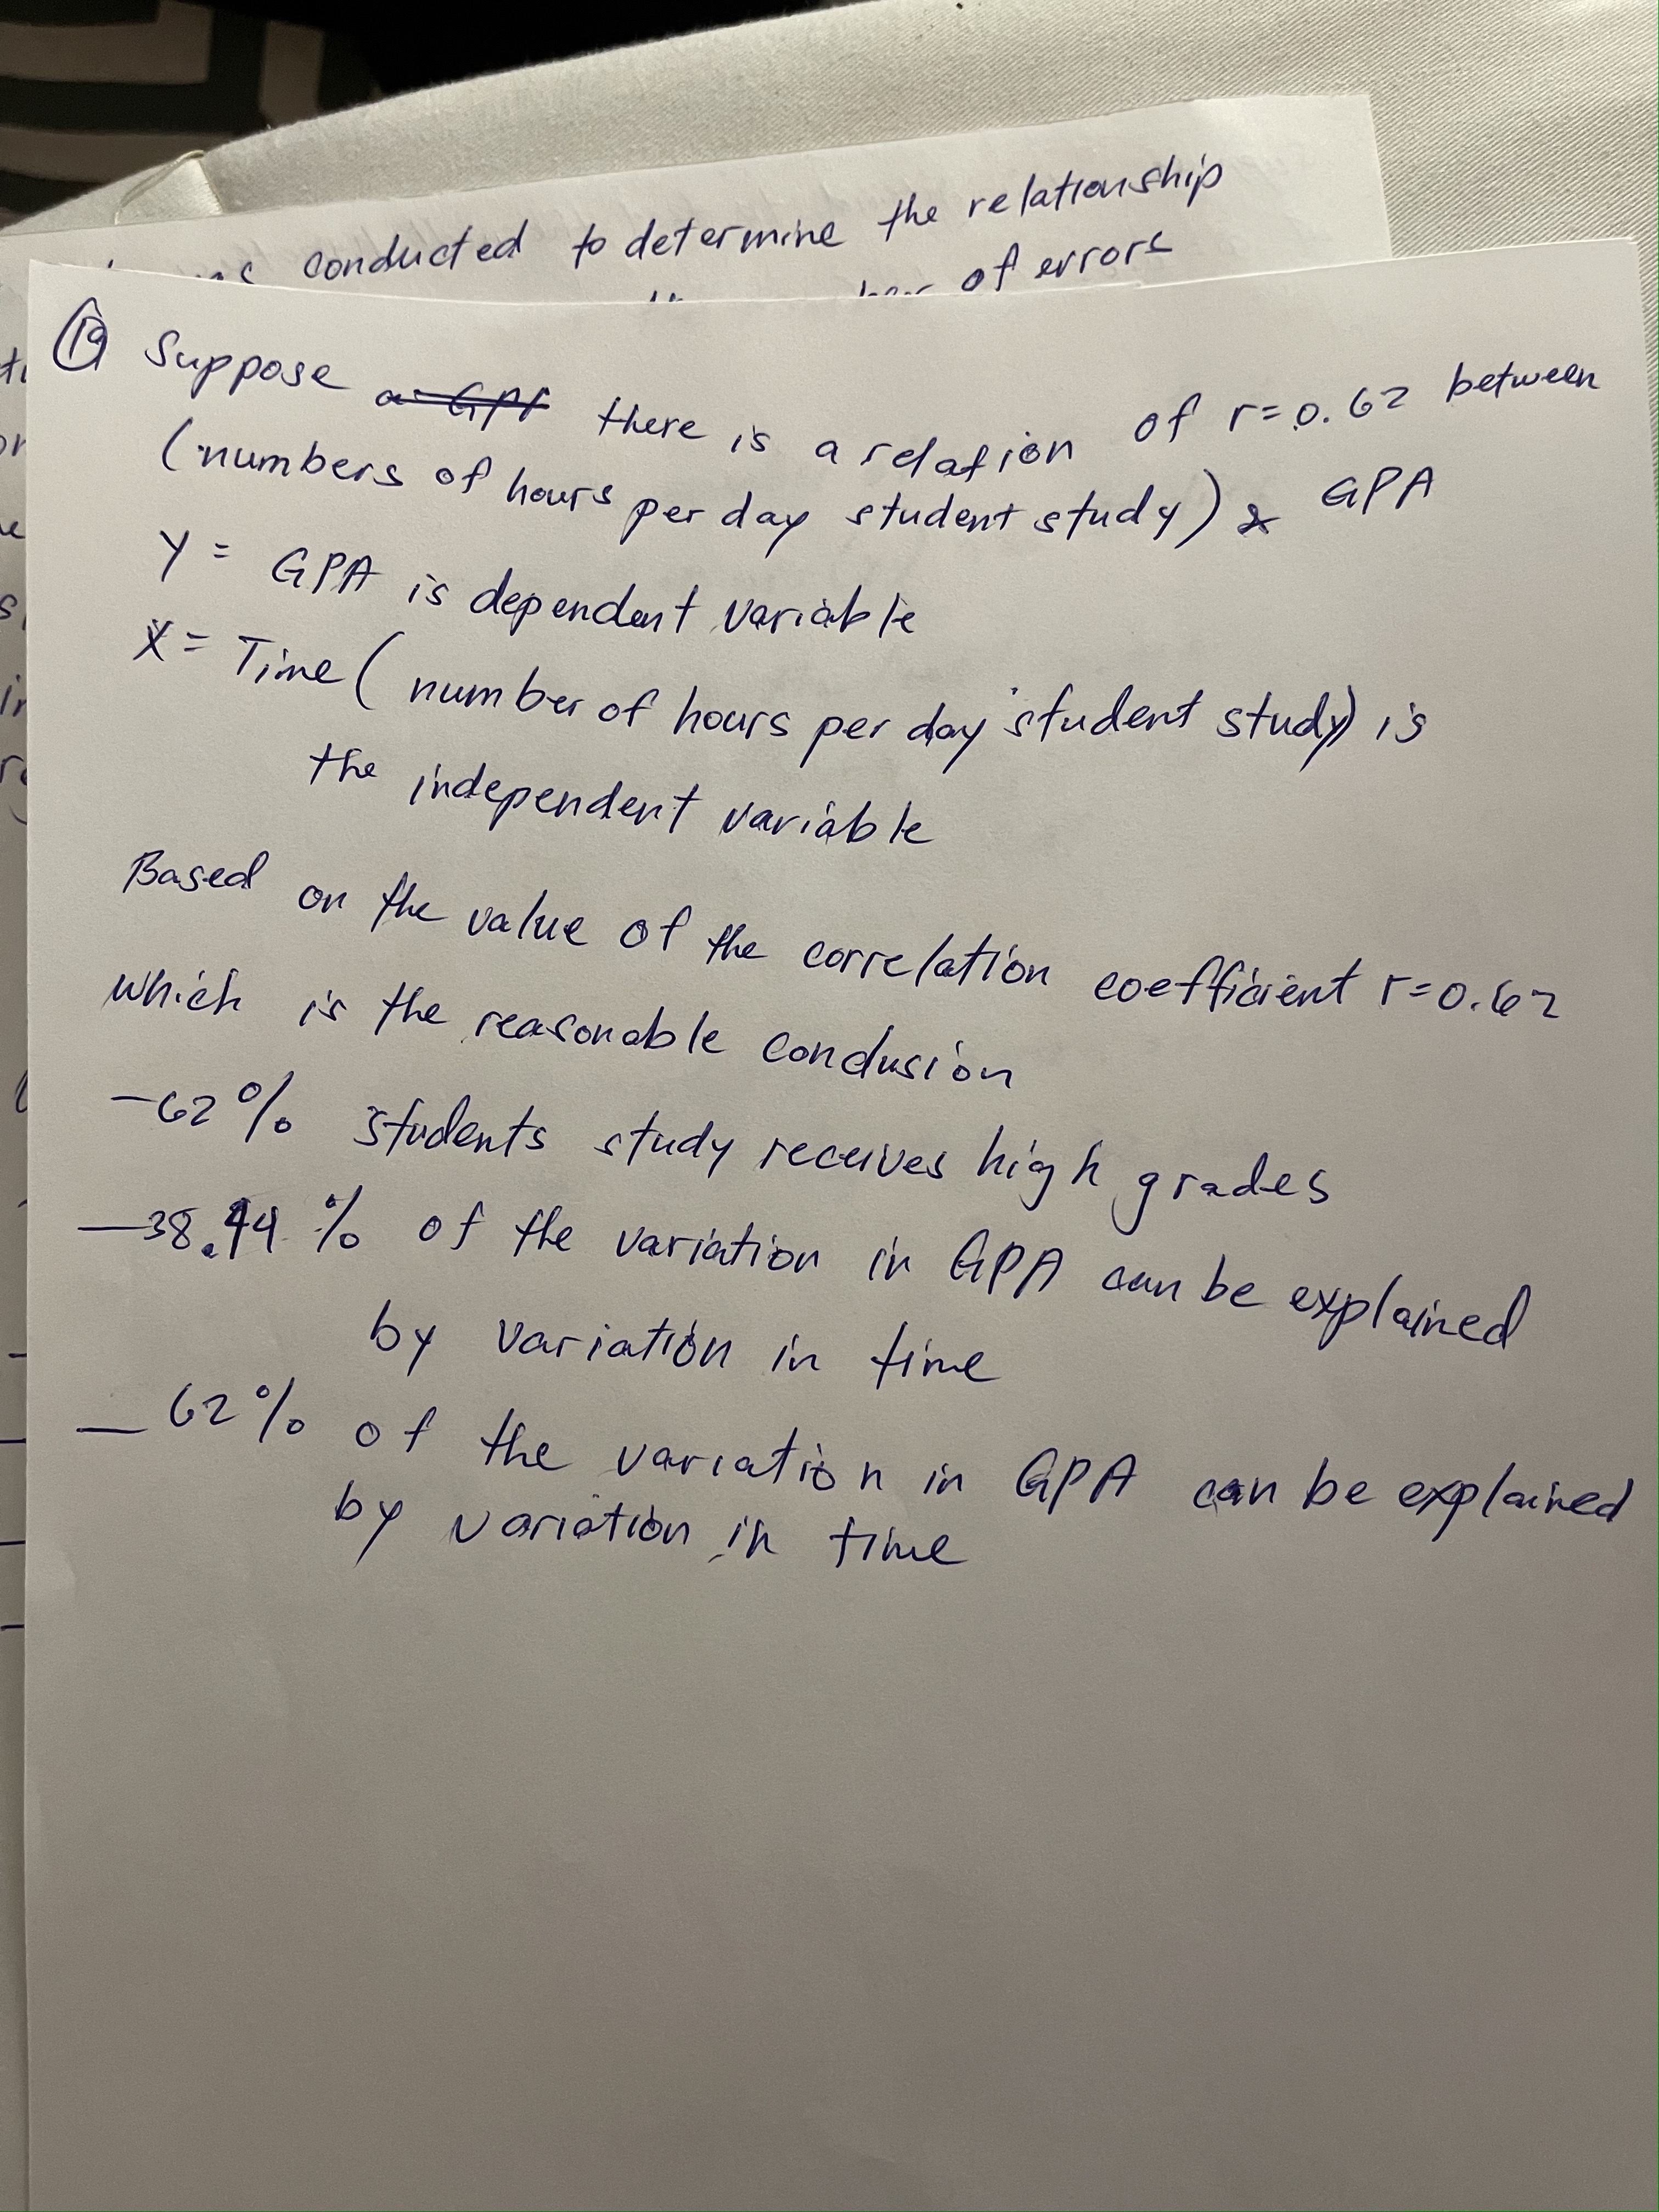 conducted to determine the relationship
of errors
19 Suppose there is a relation of r=0.62 between
(numbers of hours per day student study) & GPA
Y = GPA is dependent variable
X = Time (number of hours per day student study) is
the independent variable
Based on the value of the correlation coefficient r=0.62
which is the reasonable conclusion
- 62% students study receives high grades
- 38.44% of the variation in GPA can be explained
by variation in time
- 62% of the variation in GPA can be explained
by variation in time